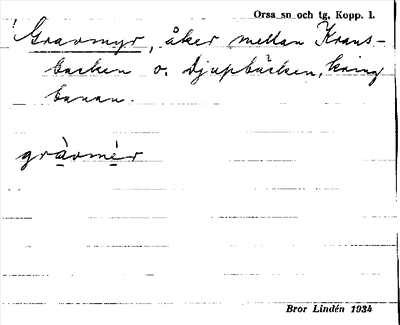 Orsa sn och tg. Kopp. l.
Gravmyr, åker mellan Krans-
backen o. Djupbäcken, kring
banan.
gràvmér
Bror Lindén 1934